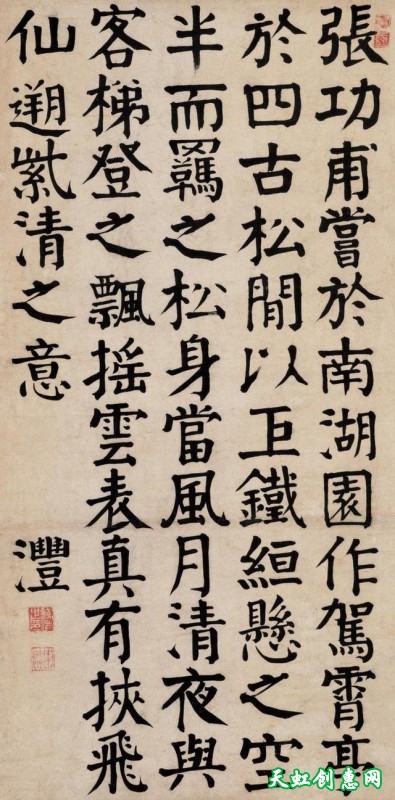 張功甫嘗於南湖園作駕霄亭
於四古松間以巨鐵絙懸之空
半而羈之松身當風月清夜與
客梯登之飄搖雲表真有挾飛
仙遡紫清之意
灃
天虹创惠网